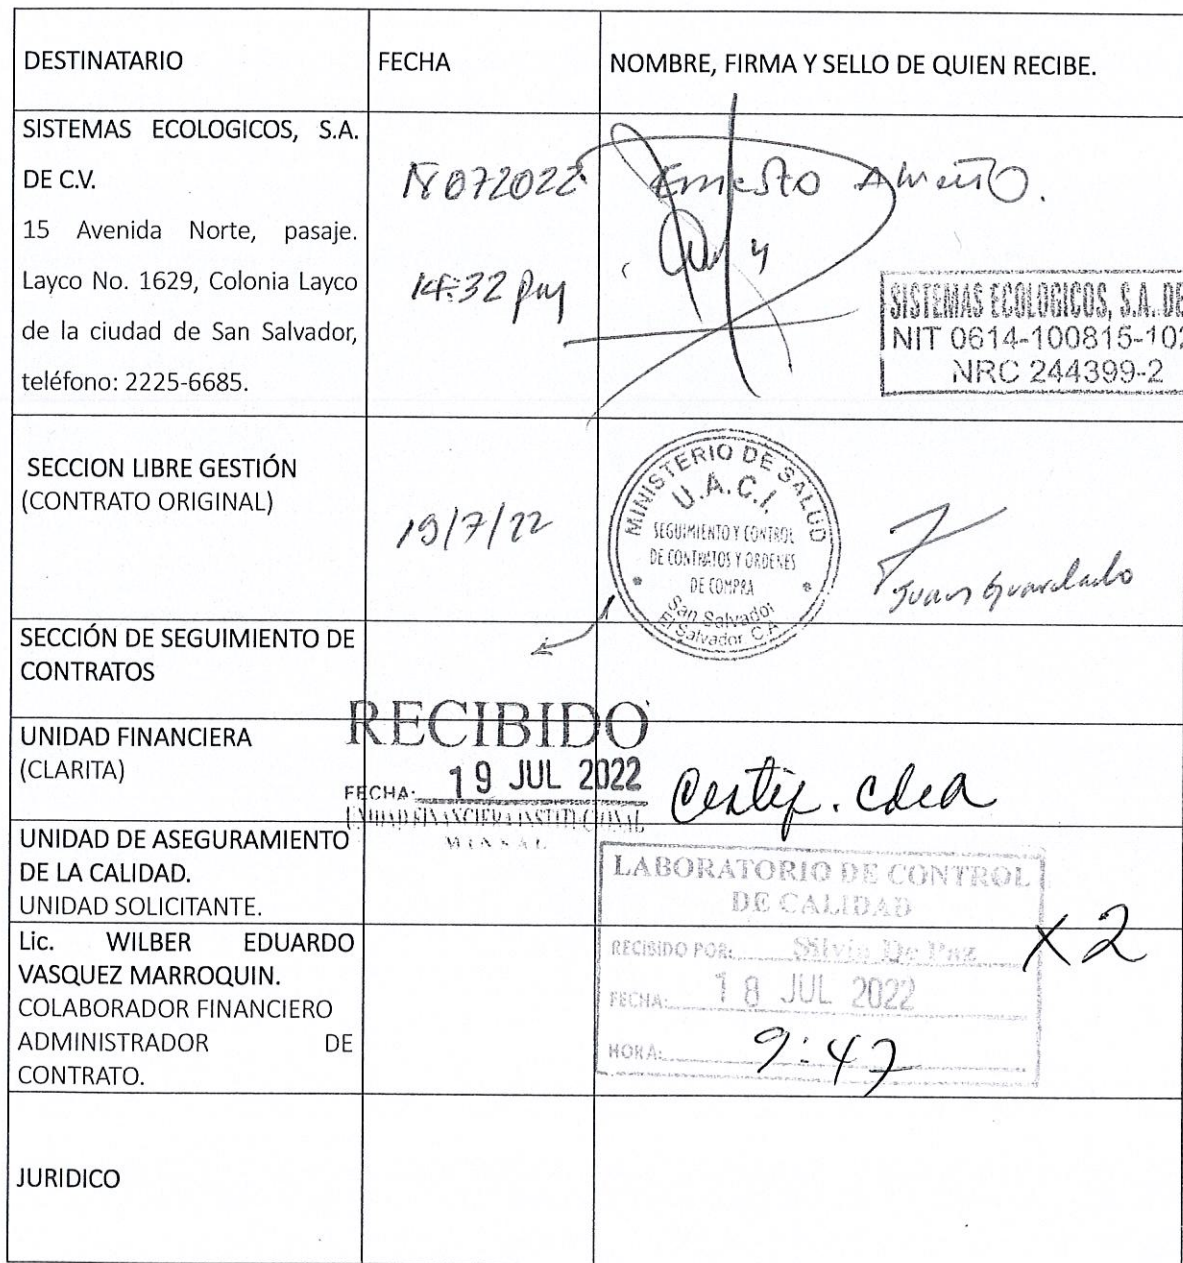 DESTINATARIO
FECHA
NOMBRE, FIRMA Y SELLO DE QUIEN RECIBE.
SISTEMAS ECOLOGICOS, S.A.
DE C.V.
15 Avenida Norte, pasaje.
Layco No. 1629, Colonia Layco
de la ciudad de San Salvador,
teléfono: 2225-6685.
072022
14:32 pm
Ernesto
SISTEMAS ECOLOGICOS, S.A. DE
NIT 0614-100815-102
NRC 244399-2
SECCION LIBRE GESTIÓN
(CONTRATO ORIGINAL)
19/7/22
MINISTERIO DE SALUD
U.A.C.I.
SEGUIMIENTO Y CONTROL
DE CONTRATOS Y ORDENES
DE COMPRA
San Salvador
El Salvador C.A.
Juan Guardado
SECCIÓN DE SEGUIMIENTO DE
CONTRATOS
UNIDAD FINANCIERA
(CLARITA)
RECIBIDO
FECHA: 19 JUL 2022
UNIDAD FINANCIERA INSTITUCIONAL
MINSAL
Certif.
UNIDAD DE ASEGURAMIENTO
DE LA CALIDAD.
UNIDAD SOLICITANTE.
LABORATORIO DE CONTROL
DE CALIDAD
Lic. WILBER EDUARDO
VASQUEZ MARROQUIN.
COLABORADOR FINANCIERO
ADMINISTRADOR DE
CONTRATO.
RECIBIDO POR: Silvia De Paz
X2
FECHA: 18 JUL 2022
HORA: 9:47
JURIDICO